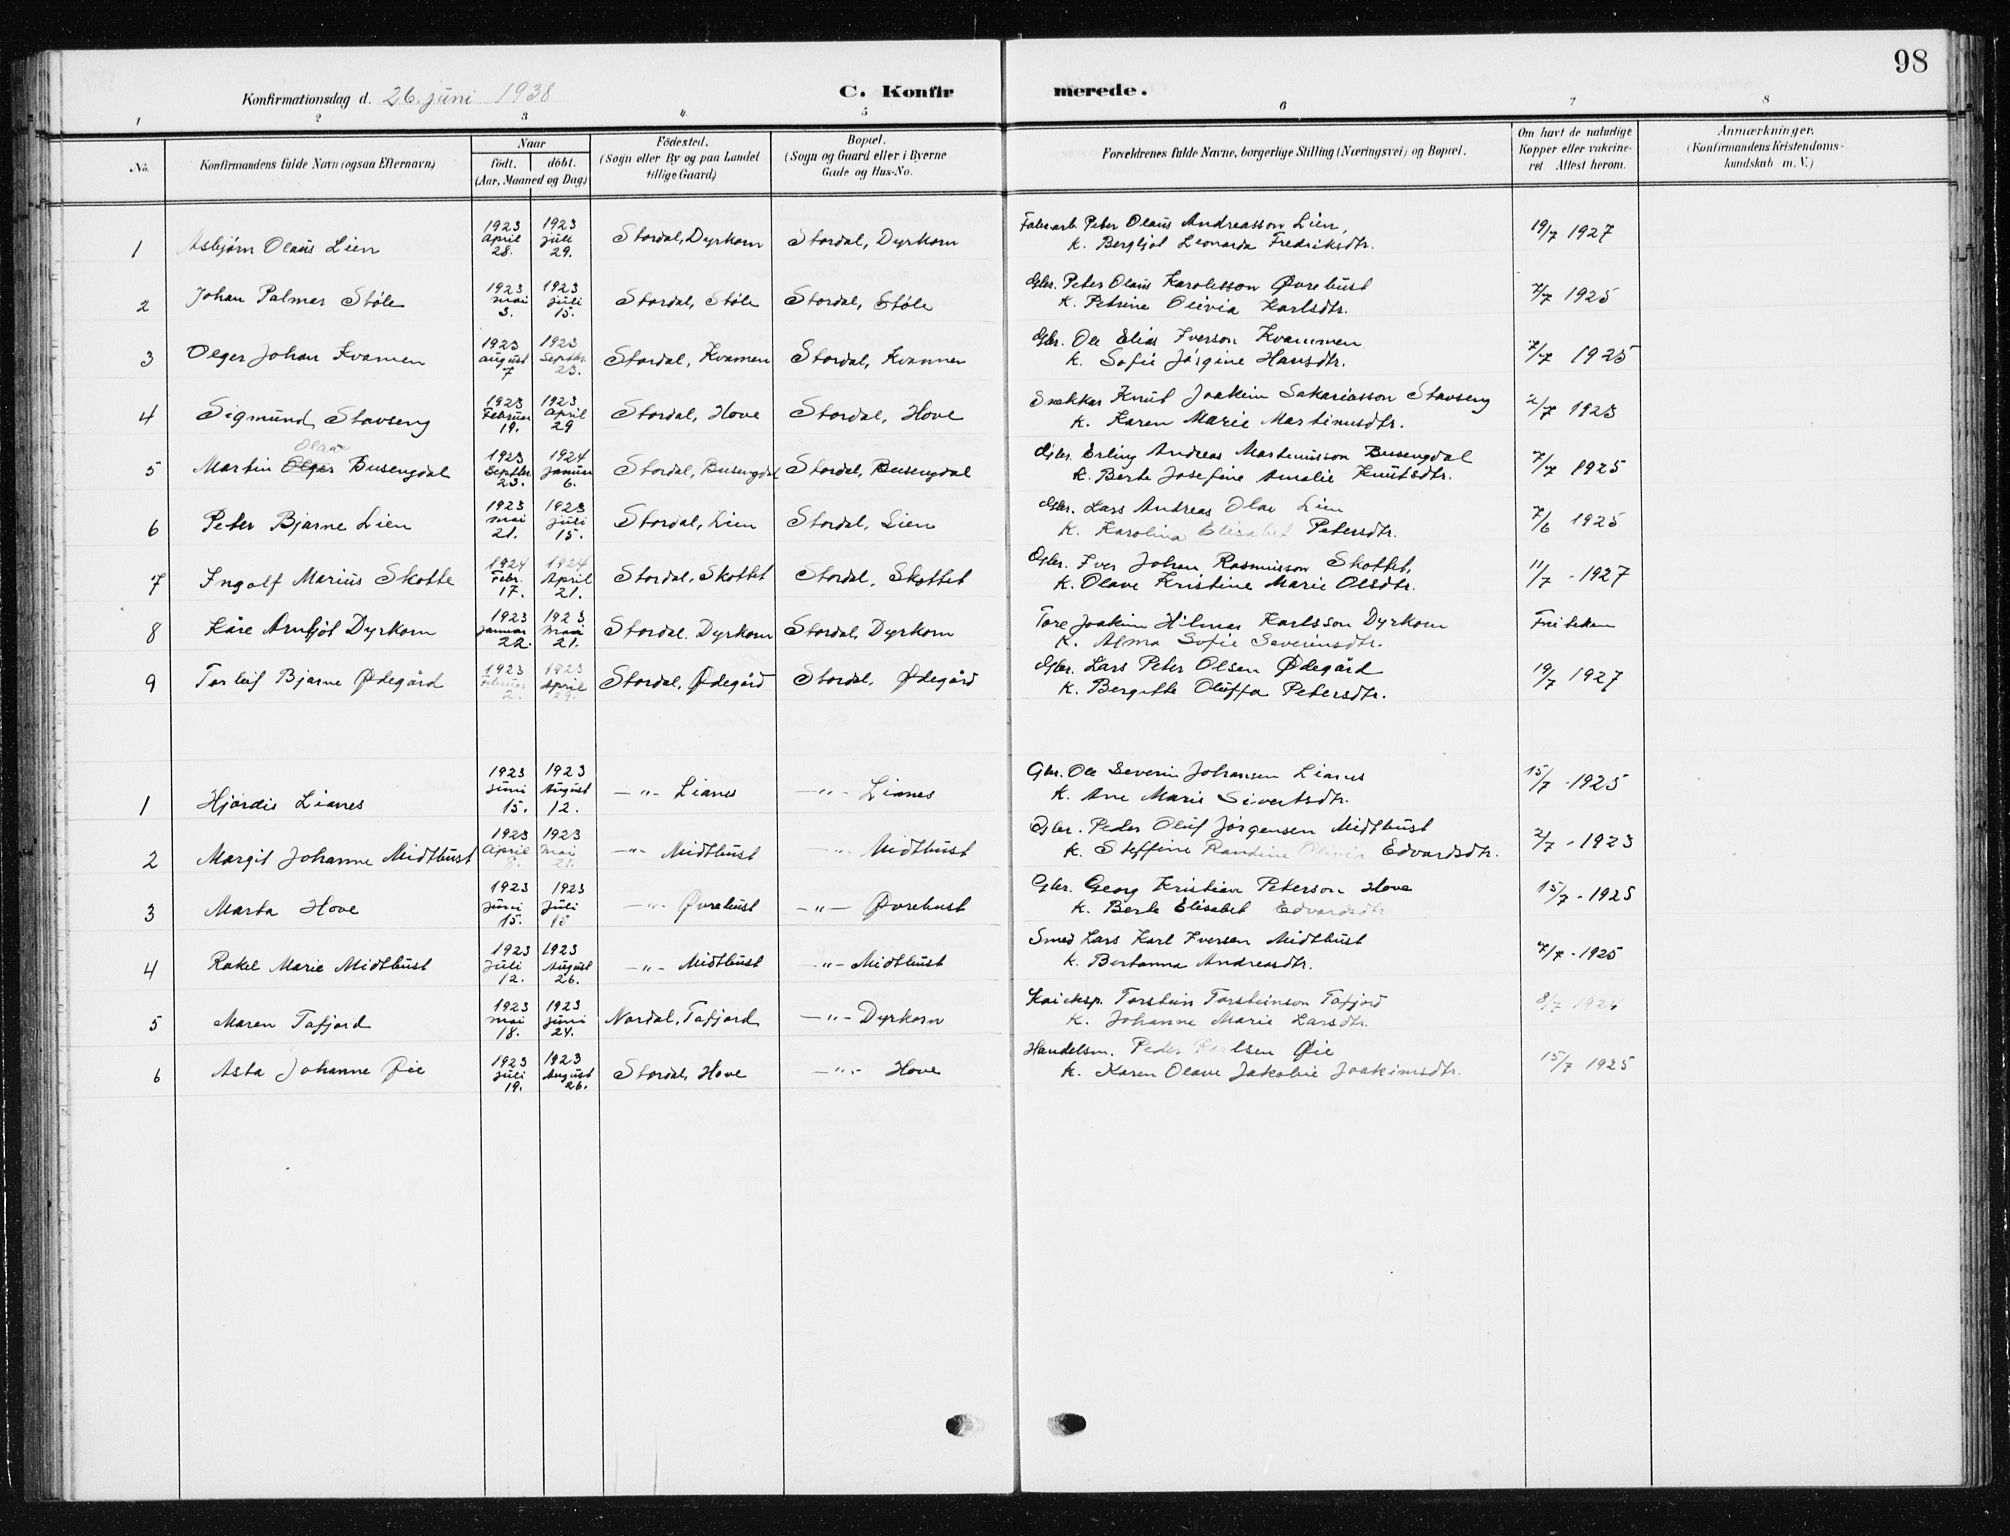 98
Konfirmationsdag d. 26. juni 1938 C. Konfirmerede.
1 2 3 4 5 6 7 8
No. Konfirmandens fulde Navn (ogsaa Efternavn) Naar født. døbt. (Aar, Maaned og Dag) Födested. (Sogn eller By og paa Landet tillige Gaard) Bopæl. (Sogn og Gaard eller i Byerne Gade og Hus-No. Forældrenes fulde Navne, borgerlige Stilling (Næringsvei) og Bopæl. Om havt de naturlige Kopper eller vakcineret Attest herom. Anmærkninger. (Konfirmandens Kristendomskundskab m. V.)
1 Asbjørn Olaus Lien 1923 April 28. 1923 juli 29. Stordal, Dyrkorn Stordal, Dyrkorn Peter Olaus Andreasson Lien, K. Bergljot Leonarda Fredriksdtr. 19/7 1927
2 Johan Palmer Støle 1923 mai 3. 1923 juli 15. Stordal, Støle Stordal, Støle Gbr. Peter Olaus Karolusson Øvrebust K. Petrine Olivia Karlsdtr. 7/7 1925
3 Olger Johan Kvamen 1923 august 7 1923 Septbr. 23. Stordal, Kvamen Stordal, Kvamen Gbr. Ole Elias Iverson Kvammen K. Sofie Jørgine Hansdtr. 7/7 1925
4 Sigmund Stavseng 1923 Februar 19. 1923 April 29 Stordal, Hove Stordal, Hove Snekker Knut Joakim Sakariasson Stavseng K. Karen Marie Martinusdtr. 2/7 1923
5 Martin Olger Busengdal 1923 Septbr. 23. 1924 januar 6. Stordal, Busengdal Stordal, Busengdal Gbr. Erling Andreas Martinusson Busengdal K. Berte Josefine Amalie Knutsdtr. 7/7 1925
6 Peter Bjarne Lien 1923 mai 21. 1923 juli 15. Stordal, Lien Stordal, Lien Gbr. Lars Andreas Olav Lien K. Karolina Elisabet Petersdtr. 7/6 1925
7 Ingolf Marius Skotte 1924 Febr. 17. 1924 April 21. Stordal, Skottet Stordal, Skottet Gbr. Iver Johan Rasmusson Skottet, K. Olave Kristine Marie Olsdtr. 11/7 - 1927
8 Kåre Arnljot Dyrkorn 1923 januar 22. 1923. Mai 21. Stordal, Dyrkorn Stordal, Dyrkorn Tore Joakim Hilmar Karlsson Dyrkorn K. Alma Sofie Severinsdtr.
9 Torleif Bjarne Ødegård 1923 Februar 2. 1923 April 29. Stordal, Ødegård Stordal, Ødegård Gbr. Lars Peter Olsen Ødegård K. Bergitte Oluffa Petersdtr. 19/7 1927
1 Hjørdis Lianes 1923 juni 15. 1923 August 12. -"- Lianes -"- Lianes Gbr. Ole Severin Johansen Lianes K. Ane Marie Sivertsdtr. 15/7 - 1925
2 Margit Johanne Midtbust 1923 April 8. 1923 mai 21. -"- Midtbust -"- Midtbust Gbr. Peder Oluf Jørgensen Midtbust K. Steffine Randine Olivia Edvardsdtr. 2/7 - 1923
3 Marta Hove 1923 juni 15. 1923 juli 15 -"- Øvrebust -"- Øvrebust Gbr. Georg Kristian Peterson Hove K. Berte Elisabet Edvardsdtr 15/7 - 1925
4 Rakel Marie Midtbust 1923 juli 12. 1923 August 26. -"- Midtbust -"- Midtbust Smed Lars Karl Iversen Midtbust K. Bertanna Andreasdtr. 7/7 - 1925
5 Maren Tafjord 1923 mai 18. 1923 juni 24. Nordal, Tafjord -"- Dyrkorn Kaieksp. Torstein Torsteinson Tafjord K. Johanne Marie Larsdtr. 8/7 1924
6 Asta Johanne Øie 1923 juli 19. 1923 August 26. Stordal, Hove -"- Hove Handelsm. Peder Øie K. Karen Olave Jakobie Joakimsdtr. 15/7 1925